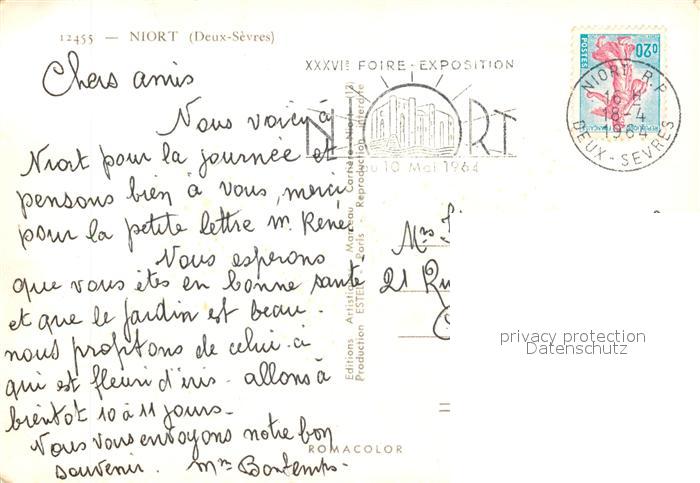 12455 — NIORT (Deux-Sèvres)
Chers amis
Nous voici à
Niort pour la journée et
pensons bien à vous, merci
pour la petite lettre M. René
Nous esperons
que vous êtes en bonne santé
et que le jardin est beau.
nous profitons de celui-ci
qui est fleuri d'iris. allons à
bientôt 10 à 11 jours.
Nous vous envoyons notre bon
souvenir. Mme Bontemps.
XXXVIE FOIRE-EXPOSITION
NIORT
au 10 Mai 1964
POSTES
0,20
NIORT R.P.
16 H
18-4
1964
DEUX-SEVRES
Editions Artistiques Marceau Carrière Niort
Production ESTEL - Paris - Reproduction Interdite
ROMACOLOR
21 Ru
privacy protection
Datenschutz